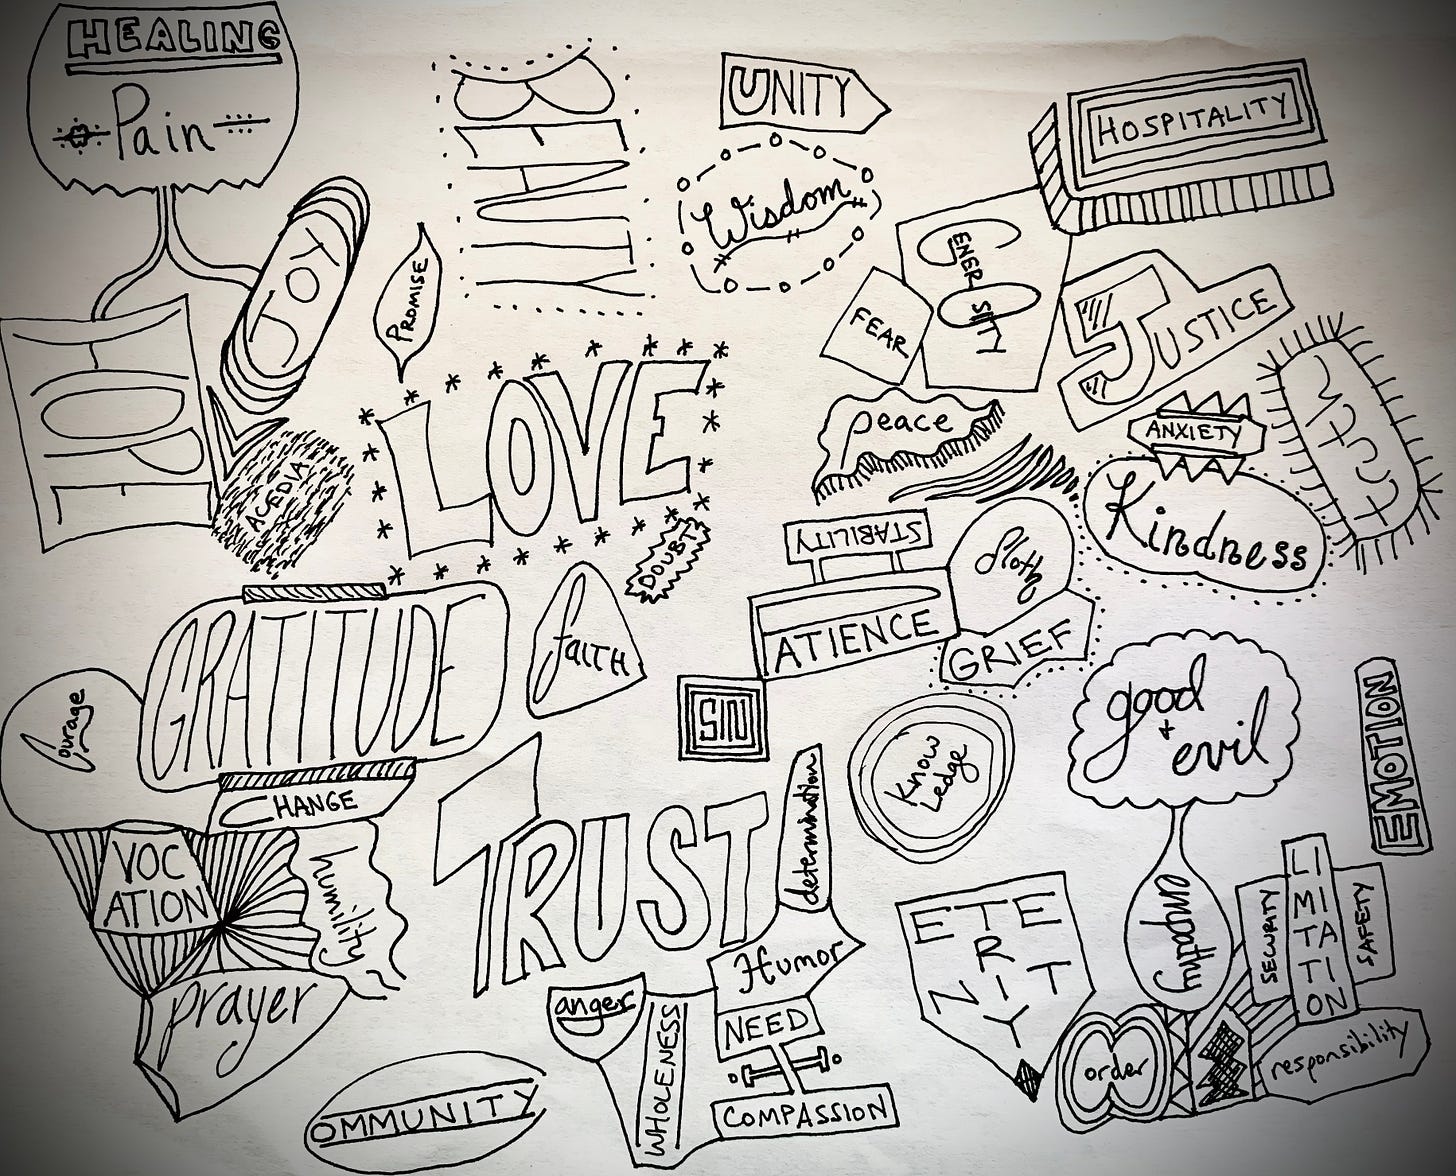 HEALING
Pain
BEAUTY
UNITY
HOSPITALITY
Wisdom
JOY
PROMISE
GENEROSITY
FEAR
JUSTICE
HOPE
LOVE
peace
ANXIETY
Kindness
ACEDIA
DOUBT
STABILITY
PATIENCE
Sloth
GRIEF
GRATITUDE
faITH
Courage
SIN
good
+
evil
EMOTION
Know
Ledge
CHANGE
TRUST
determination
VOC
ATION
humility
prayer
Humor
anger
WHOLENESS
NEED
COMPASSION
COMMUNITY
ETE
R
NITY
empathy
SECURITY
LIMITATION
SAFETY
order
responsibility